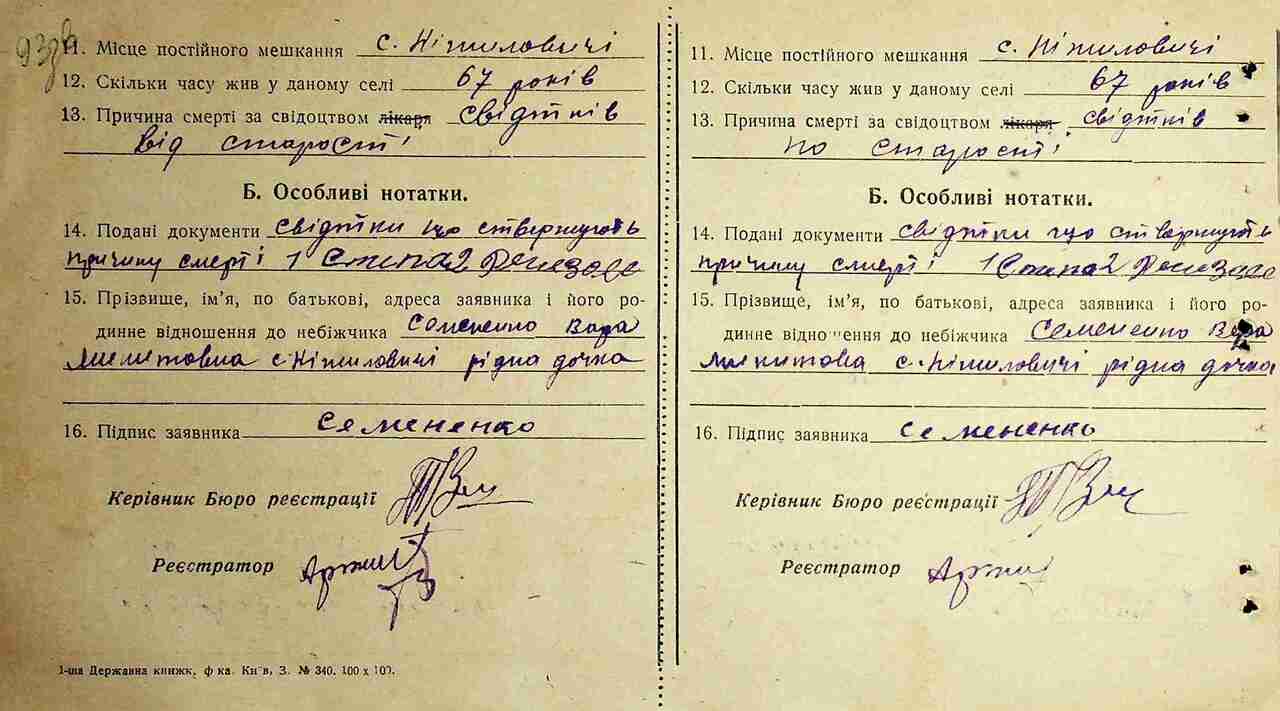 11. Місце постійного мешкання с. Німиловичі
12. Скільки часу жив у даному селі 67 років
13. Причина смерті за свідоцтвом лікаря свідтків
від старості
Б. Особливі нотатки.
14. Подані документи свідтки що ствержують
причину смерті 1 2
15. Прізвище, ім'я, по батькові, адреса заявника і його ро-
динне відношення до небіжчика Семененко
с. Німиловичі рідна дочка
16. Підпис заявника Семененко
Керівник Бюро реєстрації
Реєстратор
1-ша Державна книжк. ф-ка. Київ, З. № 340. 100 x 100.
11. Місце постійного мешкання с. Німиловичі
12. Скільки часу жив у даному селі 67 років
13. Причина смерті за свідоцтвом лікаря свідтків
по старості
Б. Особливі нотатки.
14. Подані документи свідтки що ствержують
причину смерті 1 2
15. Прізвище, ім'я, по батькові, адреса заявника і його ро-
динне відношення до небіжчика Семененко
с. Німиловичі рідна дочка
16. Підпис заявника Семененко
Керівник Бюро реєстрації
Реєстратор